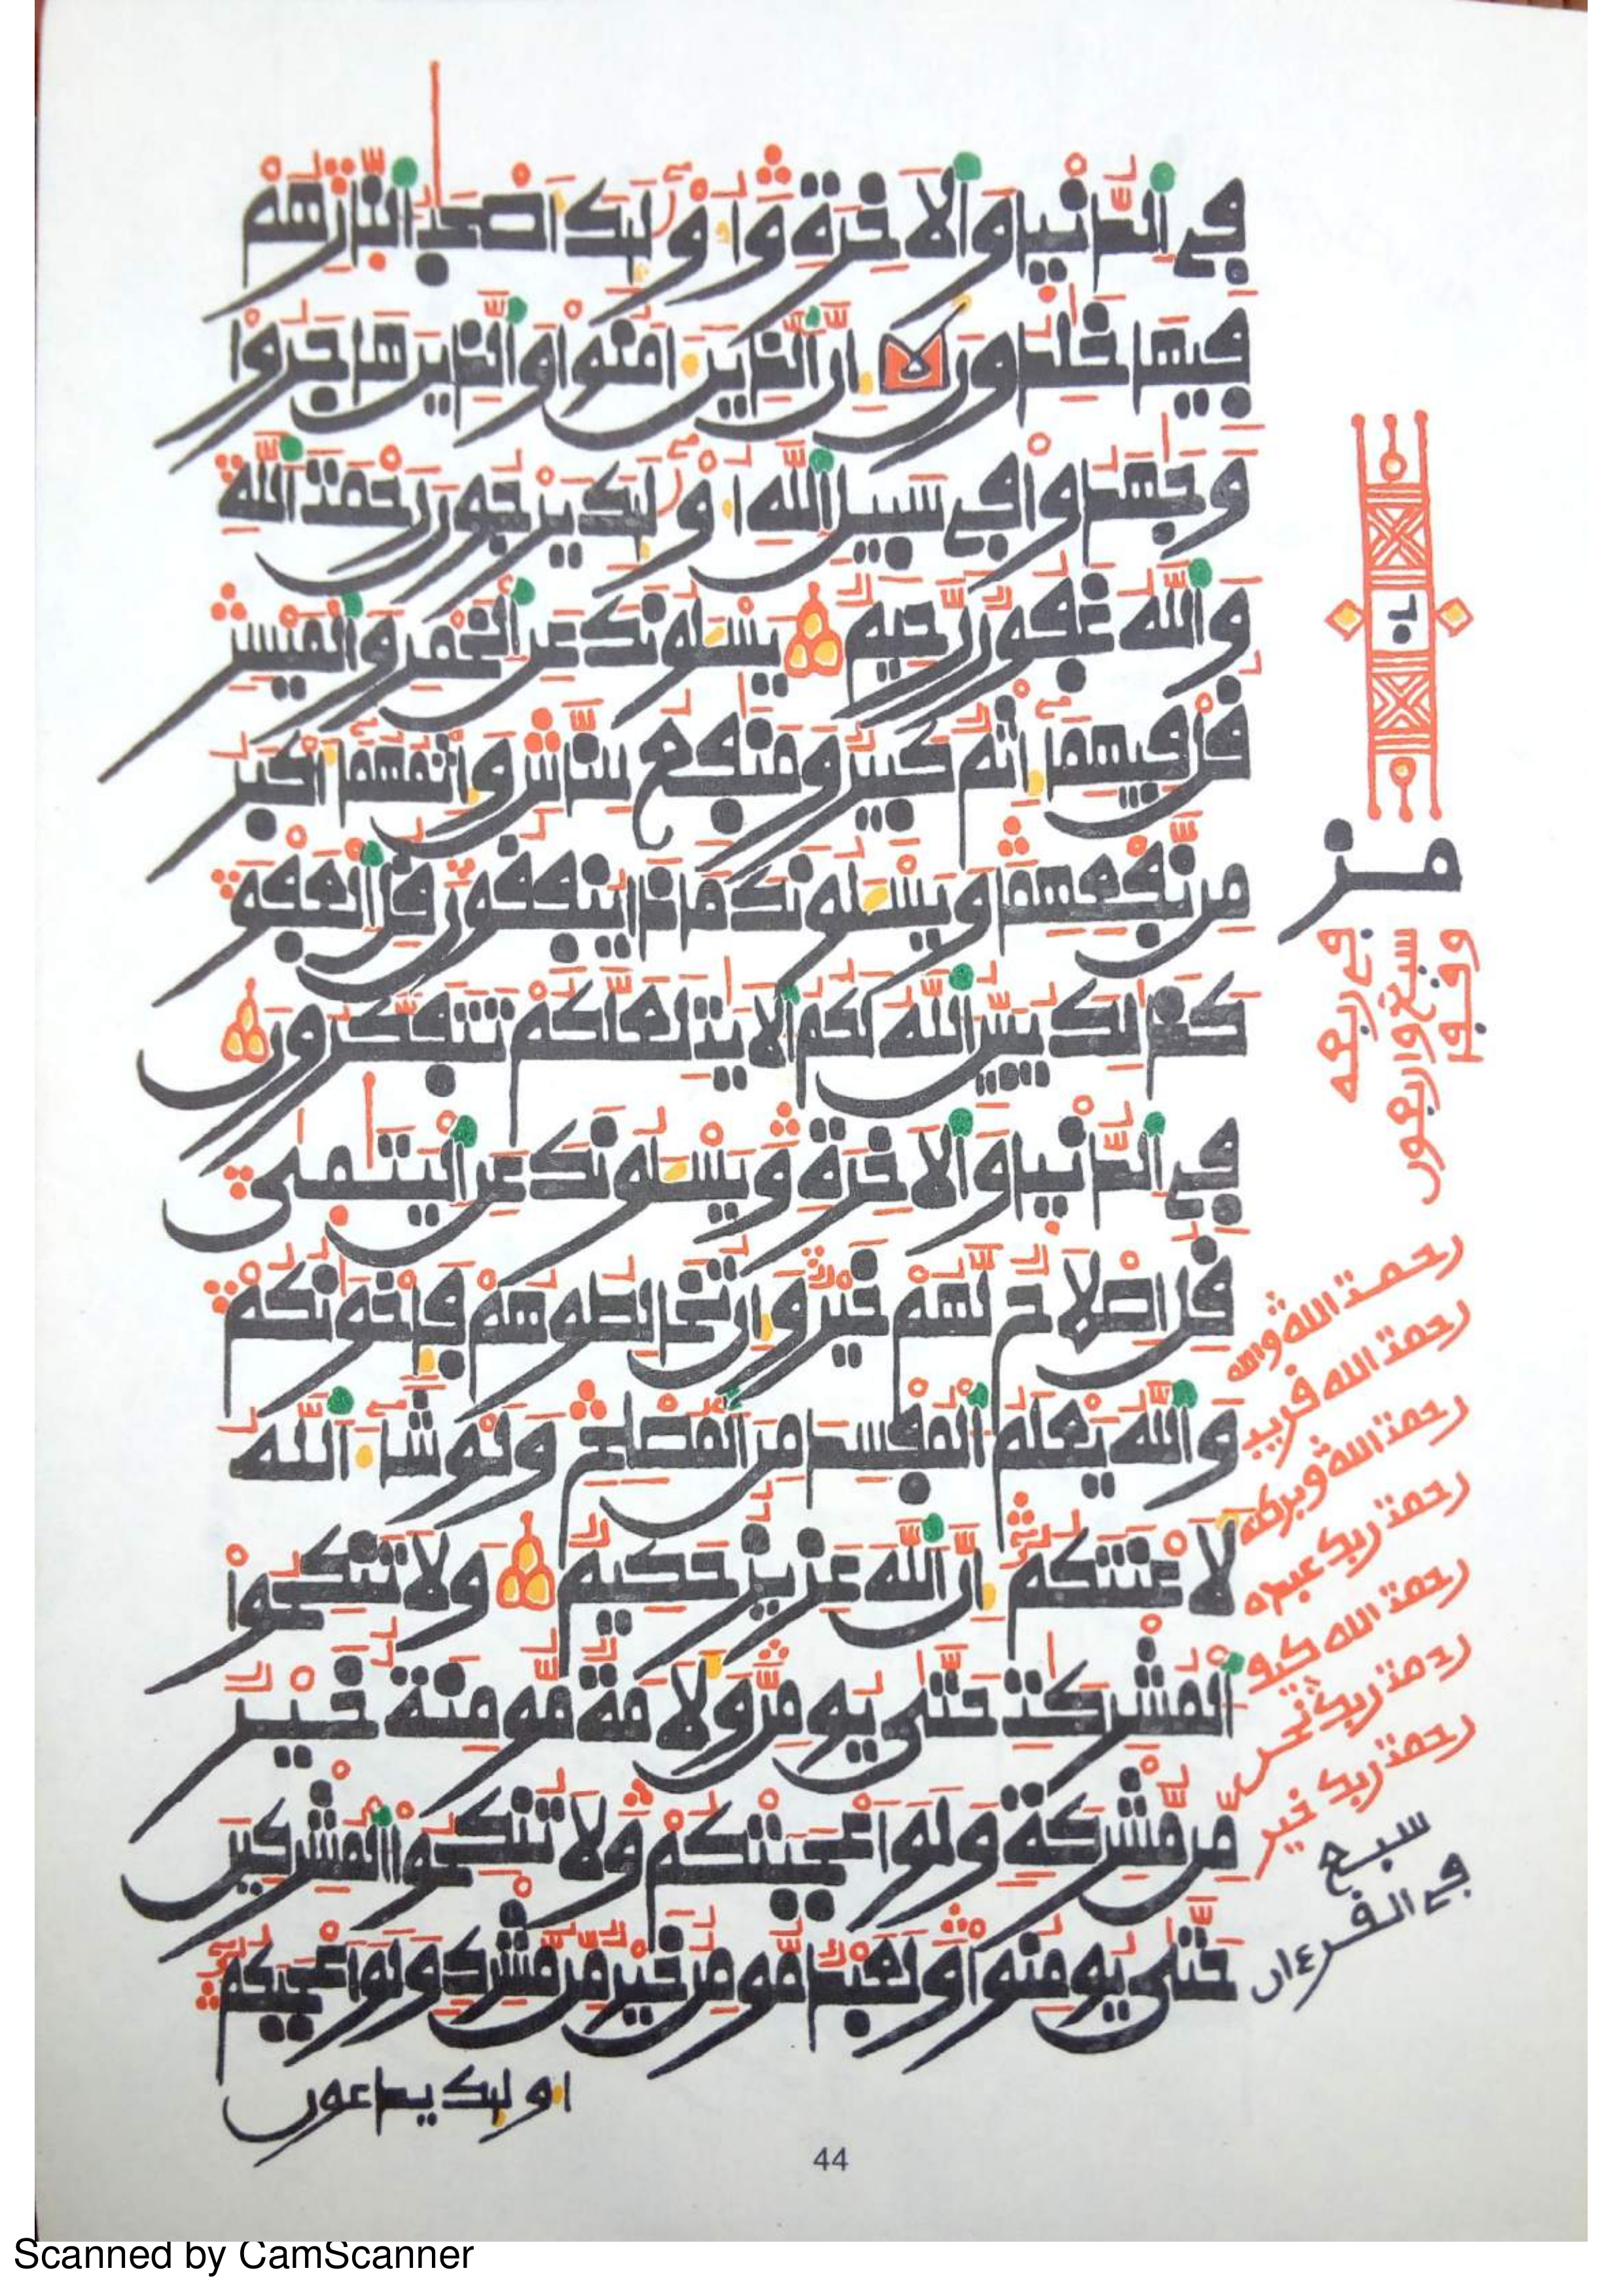 فِي اِ۬لدُّنْيٜا وَالَاخِرَةِ وَأُوْلَٰٓئِكَ أَصْحَٰبُ اُ۬لنّ۪ارِ هُمْ
فِيهَا خَٰلِدُونَ لا إِنَّ اَ۬لذِينَ ءَامَنُواْ وَالذِينَ هَاجَرُواْ
وَجَٰهَدُواْ فِي سَبِيلِ اِ۬للَّهِ أُوْلَٰٓئِكَ يَرْجُونَ رَحْمَتَ اَ۬للَّهِ
وَاللَّهُ غَفُورٌ رَّحِيمٌ يَسْـَٔلُونَكَ عَنِ اِ۬لْخَمْرِ وَالْمَيْسِرِ
قُلْ فِيهِمَآ إِثْمٌ كَبِيرٌ وَمَنَٰفِعُ لِلنَّاسِ وَإِثْمُهُمَآ أَكْبَرُ
مِن نَّفْعِهِمَا وَيَسْـَٔلُونَكَ مَاذَا يُنفِقُونَ قُلِ اِ۬لْعَفْوَ
كَذَٰلِكَ يُبَيِّنُ اُ۬للَّهُ لَكُمُ اُ۬لَايَٰتِ لَعَلَّكُمْ تَتَفَكَّرُونَ
فِي اِ۬لدُّنْيٜا وَالَاخِرَةِ وَيَسْـَٔلُونَكَ عَنِ اِ۬لْيَتَٰمَىٰ
قُلِ اِصْلَاحٌ لَّهُمْ خَيْرٌ وَإِن تُخَالِطُوهُمْ فَإِخْوَٰنُكُمْ
وَاللَّهُ يَعْلَمُ اُ۬لْمُفْسِدَ مِنَ اَ۬لْمُصْلِحِ وَلَوْ شَآءَ اَ۬للَّهُ
لَأَعْنَتَكُمْ إِنَّ اَ۬للَّهَ عَزِيزٌ حَكِيمٌ وَلَا تَنكِحُواْ
اُ۬لْمُشْرِكَٰتِ حَتَّىٰ يُومِنَّ وَلَأَمَةٌ مُّومِنَةٌ خَيْرٌ
مِّن مُّشْرِكَةٍ وَلَوَ اَعْجَبَتْكُمْ وَلَا تُنكِحُواْ اُ۬لْمُشْرِكِينَ
حَتَّىٰ يُومِنُواْ وَلَعَبْدٌ مُّومِنٌ خَيْرٌ مِّن مُّشْرِكٍ وَلَوَ اَعْجَبَكُمْ
اولئك يدعون
رحمت الله والله
رحمت الله قريب
رحمت الله وبركته
رحمت ربك عبده
رحمت ربك نحن
رحمت ربك خير
سبع
في القرءان
44
Scanned by CamScanner